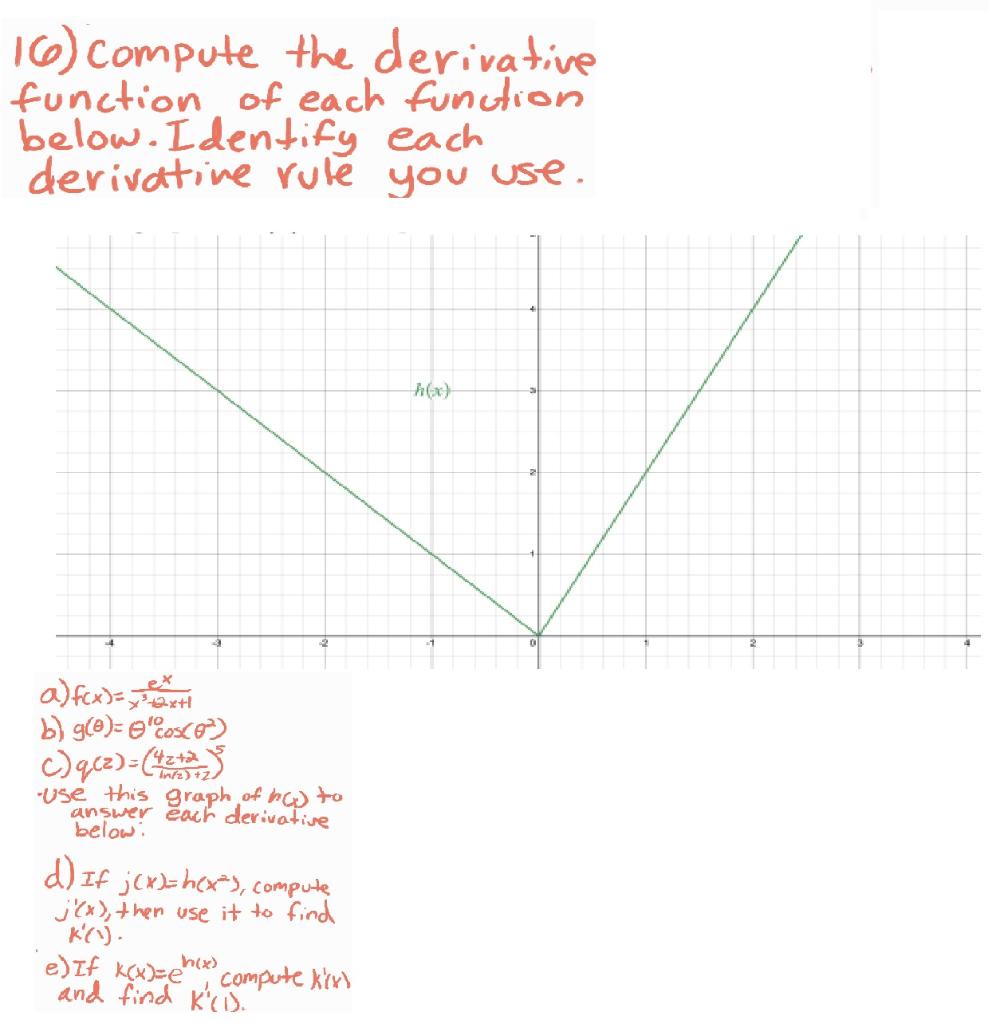 16) Compute the derivative
function of each function
below. Identify each
derivative rule you use.
h(x)
4
3
2
1
-4 -3 -2 -1 0 1 2 3 4
a) f(x) = e^x / x³+2x+1
b) g(θ) = θ^10 cos(θ²)
c) q(z) = (4z+2 / ln(z)+z)^5
-use this graph of h(x) to
answer each derivative
below:
d) If j(x)=h(x²), compute
j'(x), then use it to find
k'(1).
e) If k(x)=e^h(x), compute k'(x)
and find k'(1).